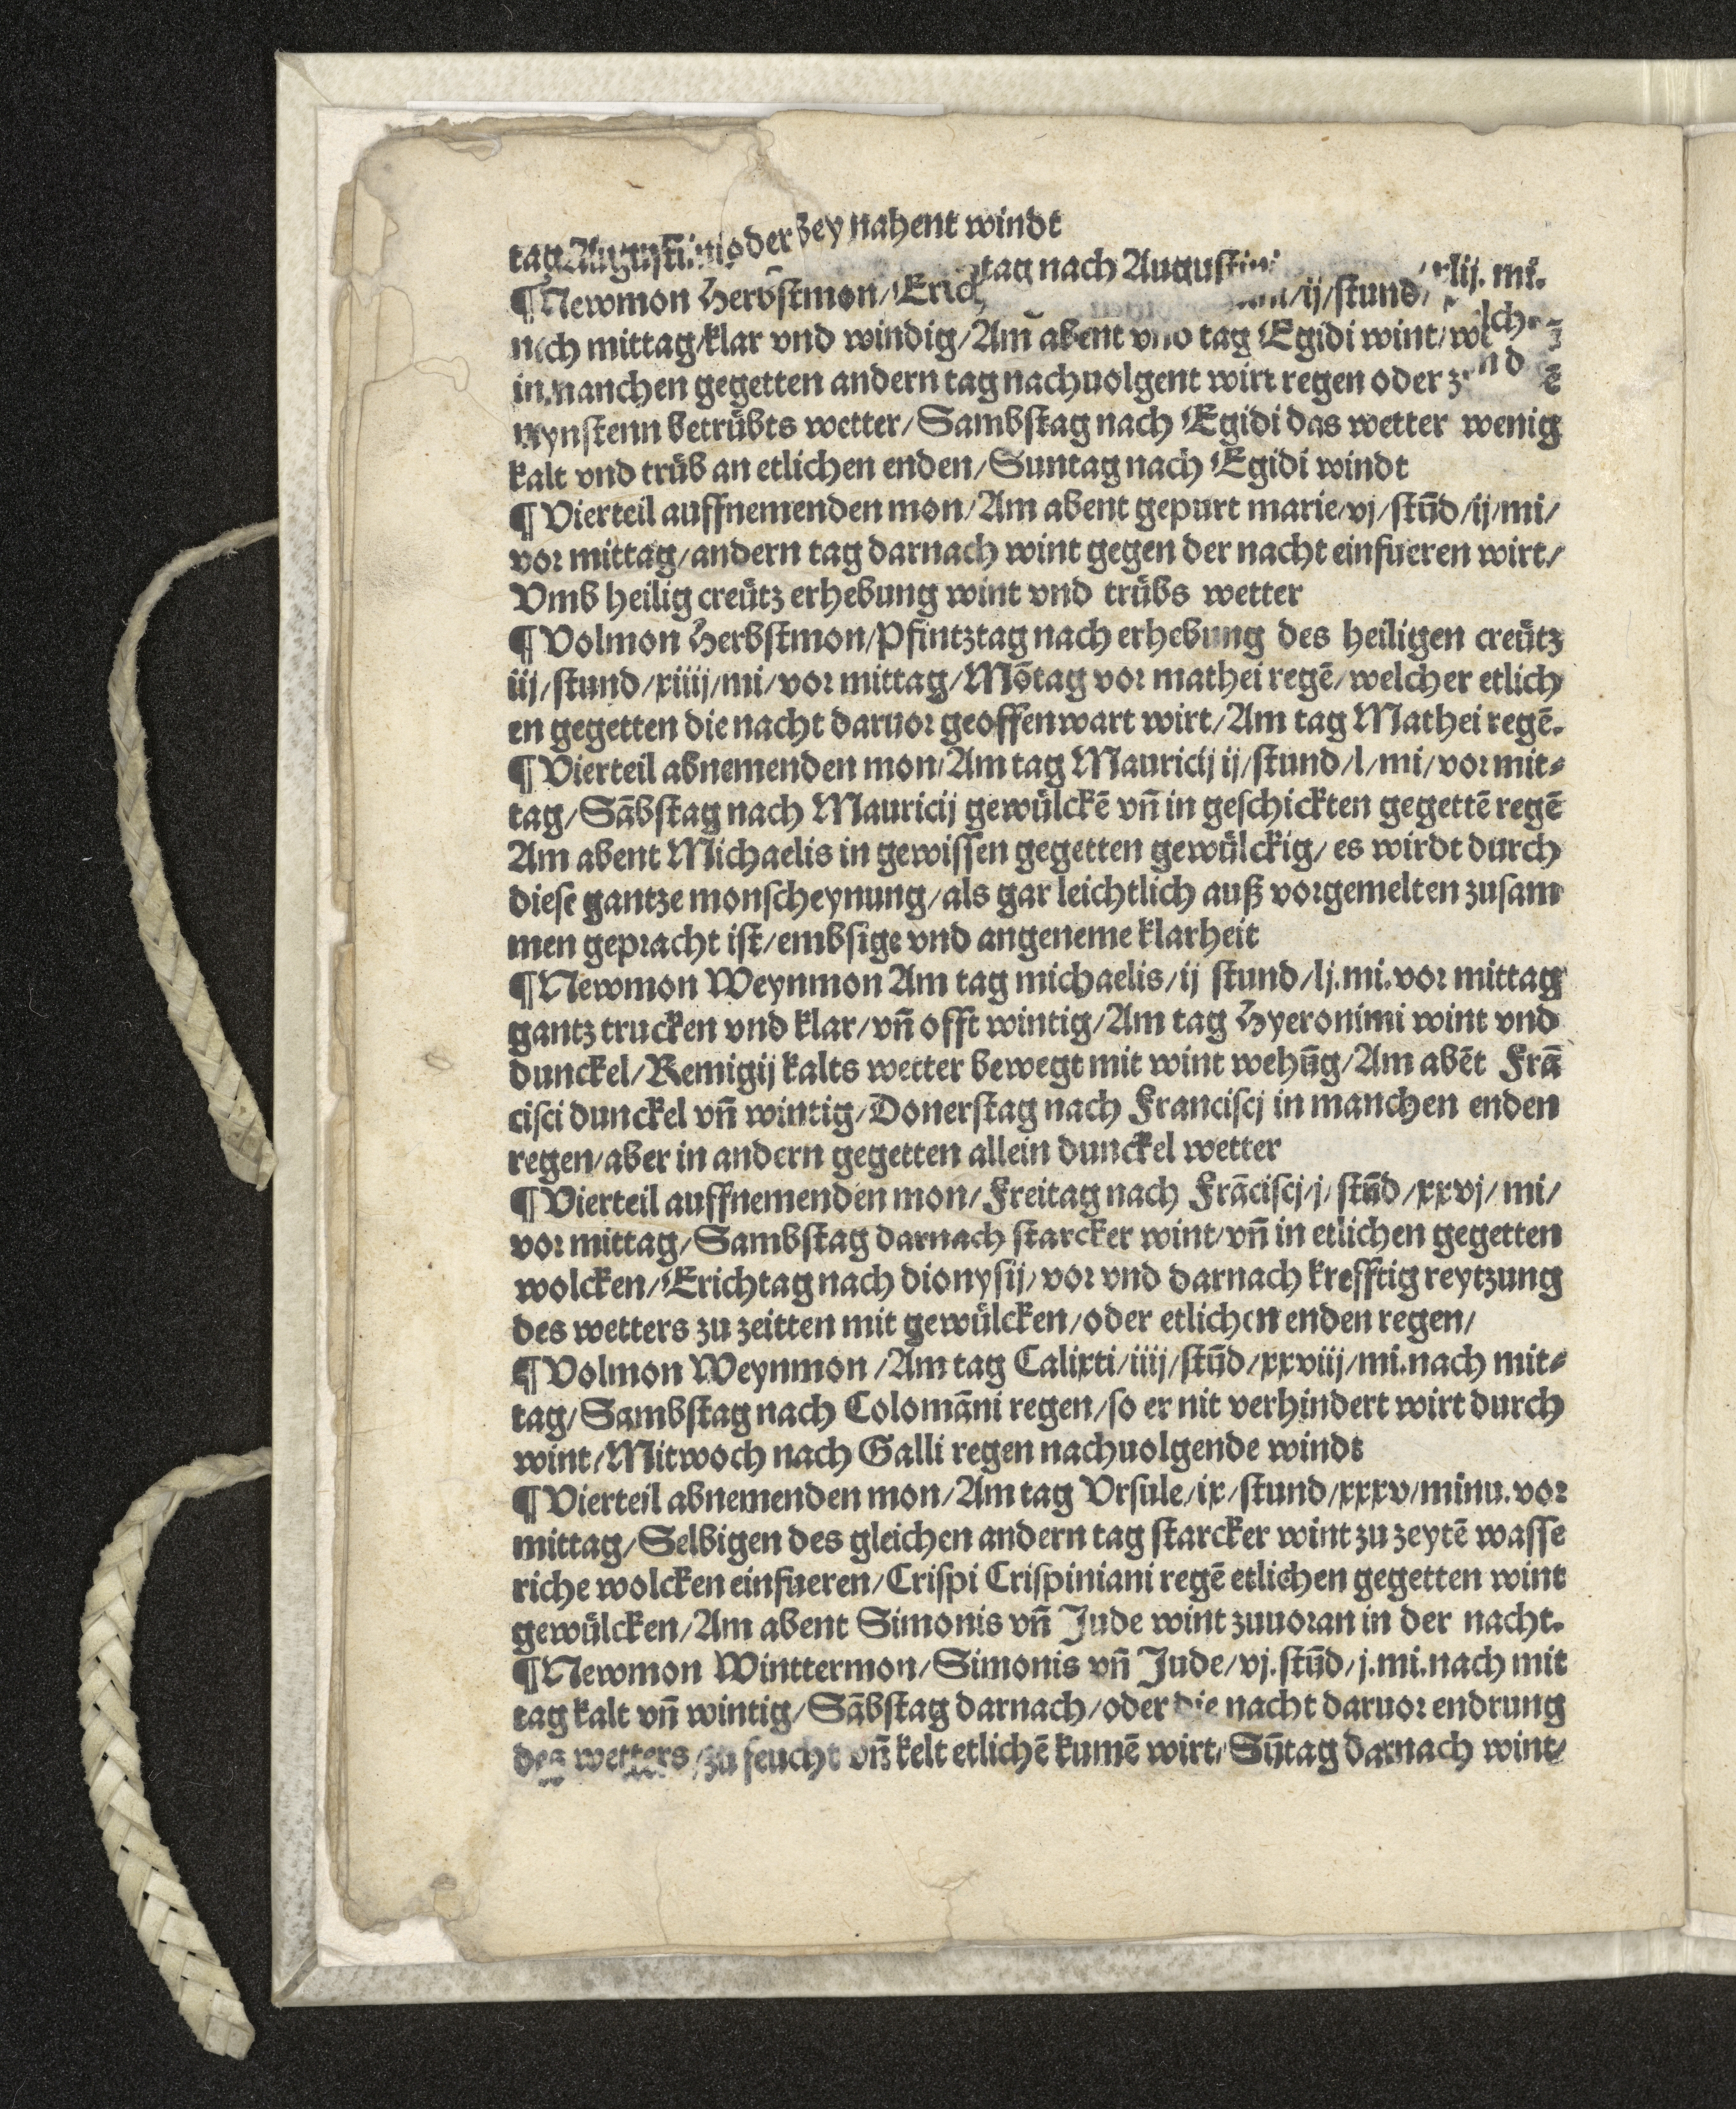 tag Augustini oder bey nahent windt
¶ Newmon Herbstmon/Erichtag nach Augustini /ij/stund/ xlij. mi.
nach mittag/klar vnd windig/Am abent vnd tag Egidi wint/welcher
in manchen gegetten andern tag nachuolgent wirt regen oder
mynstenn betrůbts wetter/Sambstag nach Egidi das wetter wenig
kalt vnd trůb an etlichen enden/Suntag nach Egidi windt
¶ Vierteil auffnemenden mon/Am abent gepurt marie/vj/stūd/ij/mi/
vor mittag/andern tag darnach wint gegen der nacht einfueren wirt/
Vmb heilig creůtz erhebung wint vnd trůbs wetter
¶ Volmon Herbstmon/Pfintztag nach erhebung des heiligen creůtz
iij/stund/xiiij/mi/vor mittag/Mōtag vor mathei regē/welcher etlich
en gegetten die nacht daruor geoffenwart wirt/Am tag Mathei regē.
¶ Vierteil abnemenden mon/Am tag Mauricij ij/stund/l/mi/vor mit⸗
tag/Sābstag nach Mauricij gewůlckē vn̄ in geschickten gegettē regē
Am abent Michaelis in gewissen gegetten gewůlckig/ es wirdt durch
diese gantze monscheynung/als gar leichtlich auß vorgemelten zusam
men gepracht ist/embsige vnd angeneme klarheit
¶ Newmon Weynmon Am tag michaelis/ij stund/lj.mi.vor mittag
gantz trucken vnd klar/vn̄ offt wintig/Am tag Hyeronimi wint vnd
dunckel/Remigij kalts wetter bewegt mit wint wehūg/Am abēt Frā
cisci dunckel vn̄ wintig/Donerstag nach Franciscj in manchen enden
regen/aber in andern gegetten allein dunckel wetter
¶ Vierteil auffnemenden mon/Freitag nach Frāciscj/j/stūd/xxvj/mi/
vor mittag/Sambstag darnach starcker wint/vn̄ in etlichen gegetten
wolcken/Erichtag nach dionysij/vor vnd darnach krefftig reytzung
des wetters zu zeitten mit gewůlcken/oder etlichen enden regen/
¶ Volmon Weynmon/Am tag Calixti/iiij/stūd/xxviij/mi.nach mit⸗
tag/Sambstag nach Colomāni regen/so er nit verhindert wirt durch
wint/Mitwoch nach Galli regen nachuolgende windt
¶ Vierteil abnemenden mon/Am tag Vrsule/ix/stund/xxxv/minu.vor
mittag/Selbigen des gleichen andern tag starcker wint zu zeytē wasse
riche wolcken einfueren/Crispi Crispiniani regē etlichen gegetten wint
gewůlcken/Am abent Simonis vn̄ Jude wint zuuoran in der nacht.
¶ Newmon Winttermon/Simonis vn̄ Jude/vj.stūd/j.mi.nach mit
tag kalt vn̄ wintig/Sābstag darnach/oder die nacht daruor endrung
des wetters/zu feucht vn̄ kelt etlichē kumē wirt/Sūtag darnach wint/